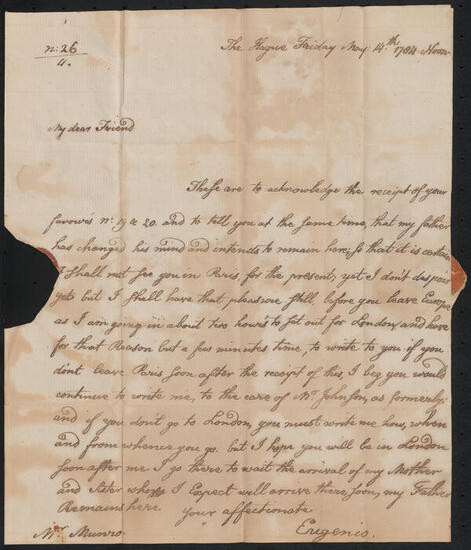 n: 26
4.
The Hague Friday May 14.th 1784. Noon
My dear Friend
These are to acknowledge the receipt of your
favours n: 19 & 20. and to tell you at the same time, that my father
has changed his mind and intends to remain here; so that it is certain
I shall not see you in Paris, for the present; yet I don't despair
yet but I shall have that pleasure still, before you leave Europe
as I am going in about two hours to set out for London, and have
for that Reason but a few minutes time, to write to you if you
don't leave Paris soon after the receipt of this, I beg you would
continue to write me, to the care of Mr. Johnson, as formerly:
and if you don't go to London, you must write me how, when
and from whence you go. but I hope you will be in London
soon after me. I go there to wait the arrival of my Mother
and sister whom I Expect will arrive there soon, my Father
Remains here. your affectionate
Eugenio.
Mr. Munro.